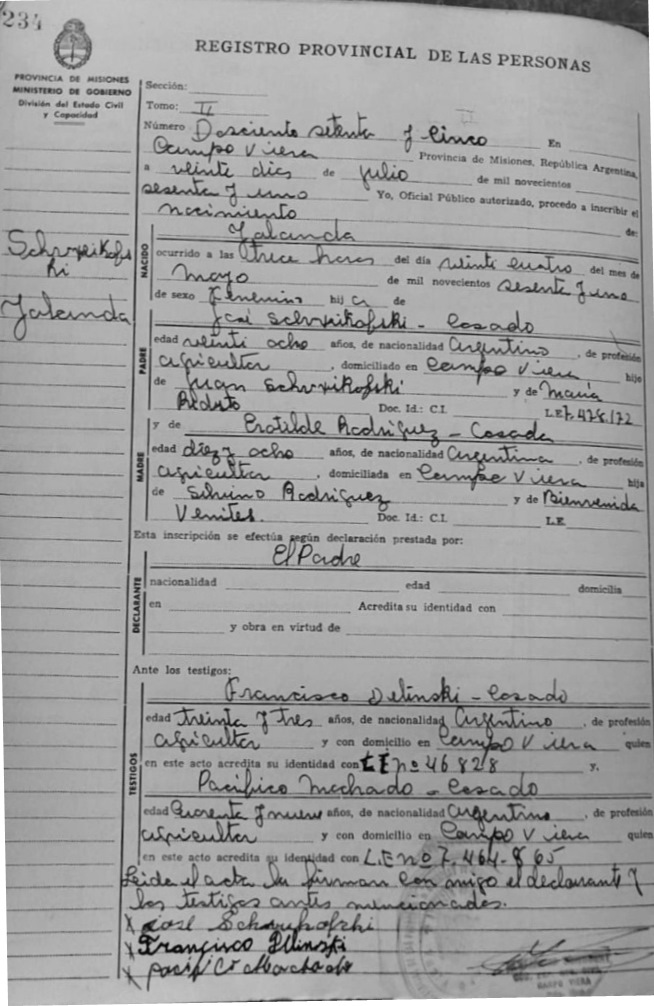 234
REGISTRO PROVINCIAL DE LAS PERSONAS
PROVINCIA DE MISIONES
MINISTERIO DE GOBIERNO
División del Estado Civil
y Capacidad
Sección:
Tomo: II
Número Dosciento setenta y Cinco En
Campo Viera Provincia de Misiones, República Argentina,
a veinte dias de julio de mil novecientos
sesenta y uno Yo, Oficial Público autorizado, procedo a inscribir el
nacimiento de:
Schrxikofs
ki
Jalanda
NACIDO
Jalanda
ocurrido a las trece horas del día veinti cuatro del mes de
Mayo de mil novecientos sesenta y uno
de sexo femenino hij a de
PADRE
José Schrxikofski - Casado
edad veinti ocho años, de nacionalidad Argentino, de profesión
agricultor, domiciliado en Campo Viera hijo
de Juan Schrxikofski y de María
Doc. Id.: C.I. L.E. 7.478.172
MADRE
y de Clotilde Rodríguez - Casada
edad diez y ocho años, de nacionalidad Argentina, de profesión
agricultora, domiciliada en Campo Viera hija
de Silvino Rodriguez y de Bienvenida
Venites. Doc. Id.: C.I. L.E.
Esta inscripción se efectúa según declaración prestada por:
El Padre
DECLARANTE
nacionalidad edad domicilia
en Acredita su identidad con
y obra en virtud de
Ante los testigos:
TESTIGOS
Francisco Delinski - Casado
edad treinta y tres años, de nacionalidad Argentino, de profesión
agricultor y con domicilio en Campo Viera quien
en este acto acredita su identidad con LE nº 46828 y.
Pacífico Machado - Casado
edad Cuarenta y nueve años, de nacionalidad Argentino, de profesión
agricultor y con domicilio en Campo Viera quien
en este acto acredita su identidad con L.E nº 7.464.865
Leida el acta la firman con migo el declarante y
los testigos antes mencionados.
X José Schrukofski
X Francisco Dlinski
X Pacífico Machado
CAMPO VIERA